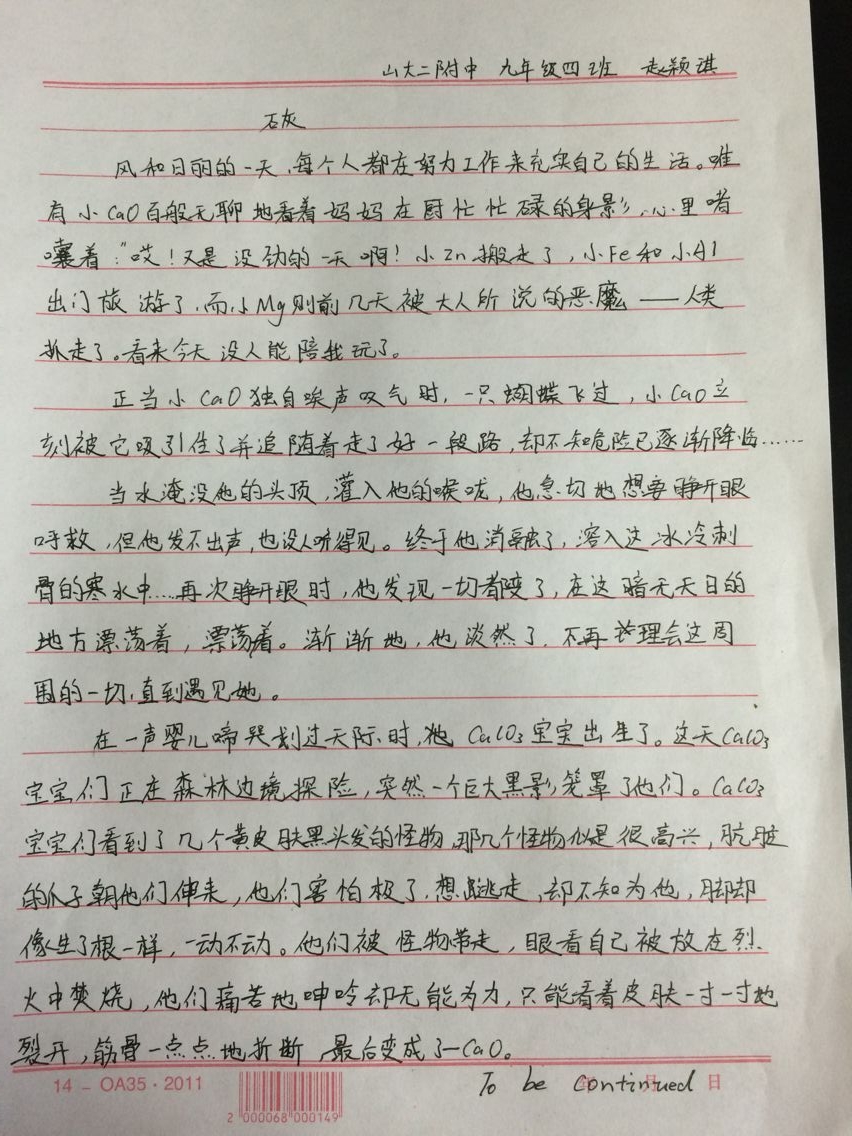 山大二附中 九年级四班 赵颖琪
石灰
风和日丽的一天，每个人都在努力工作来充实自己的生活。唯
有小CaO百般无聊地看着妈妈在厨忙忙碌的身影，心里嘟
囔着："哎！又是没劲的一天啊！小Zn搬走了，小Fe和小Al
出门旅游了，而小Mg则前几天被大人所说的恶魔——人类
抓走了。看来今天没人能陪我玩了。
正当小CaO独自唉声叹气时，一只蝴蝶飞过，小CaO立
刻被它吸引住了并追随着走了好一段路，却不知危险已逐渐降临……
当水淹没他的头顶，灌入他的喉咙，他急切地想要睁开眼
呼救，但他发不出声，也没人听得见。终于他消融了，溶入这冰冷刺
骨的寒水中…再次睁开眼时，他发现一切都变了，在这暗无天日的
地方漂荡着，漂荡着。渐渐地，他淡然了，不再理会这周
围的一切，直到遇见她。
在一声婴儿啼哭划过天际时，他 CaCO3宝宝出生了。这天CaCO3
宝宝们正在森林边境探险，突然一个巨大黑影笼罩了他们。CaCO3
宝宝们看到了几个黄皮肤黑头发的怪物，那几个怪物似是很高兴，肮脏
的爪子朝他们伸来，他们害怕极了，想逃走，却不知为他，脚却
像生了根一样，一动不动。他们被怪物带走，眼看自己被放在烈
火中焚烧，他们痛苦地呻吟却无能为力，只能看着皮肤一寸一寸地
裂开，筋骨一点点地折断，最后变成了—CaO。
To be continued
14－OA35·2011
月 日
2 000068 000149